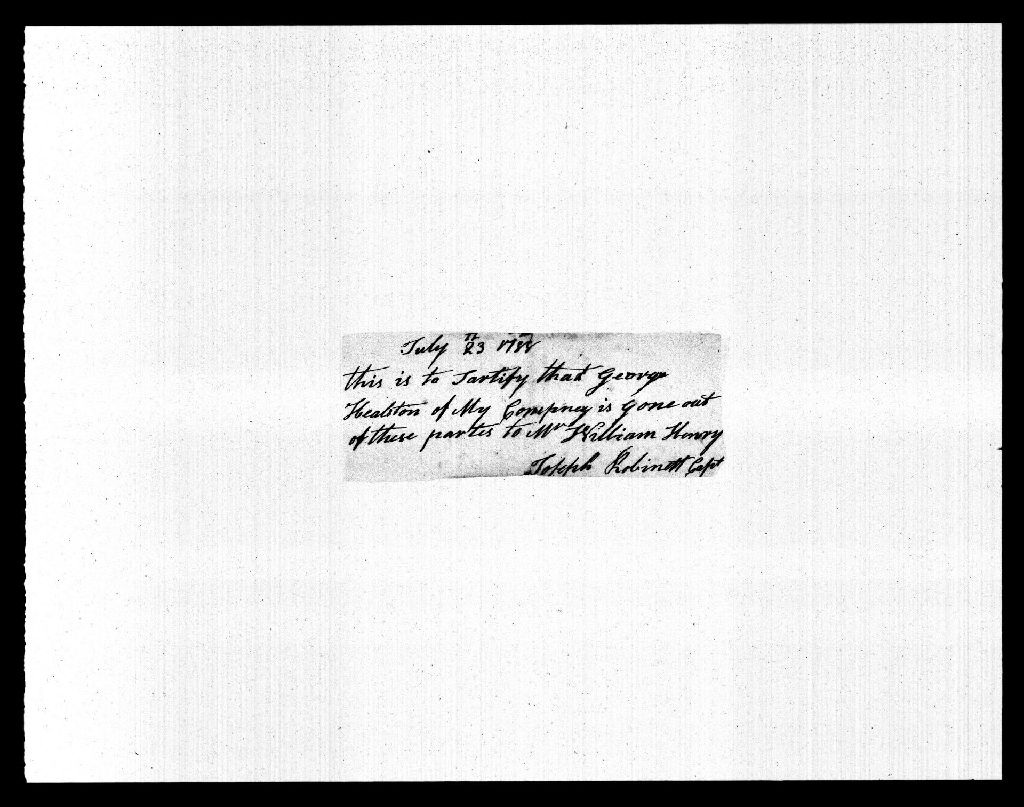 July 23 1788
this is to Sartify that George
Healston of My Compney is gone out
of these partes to Mr William Henry
Joseph Robinett Capt